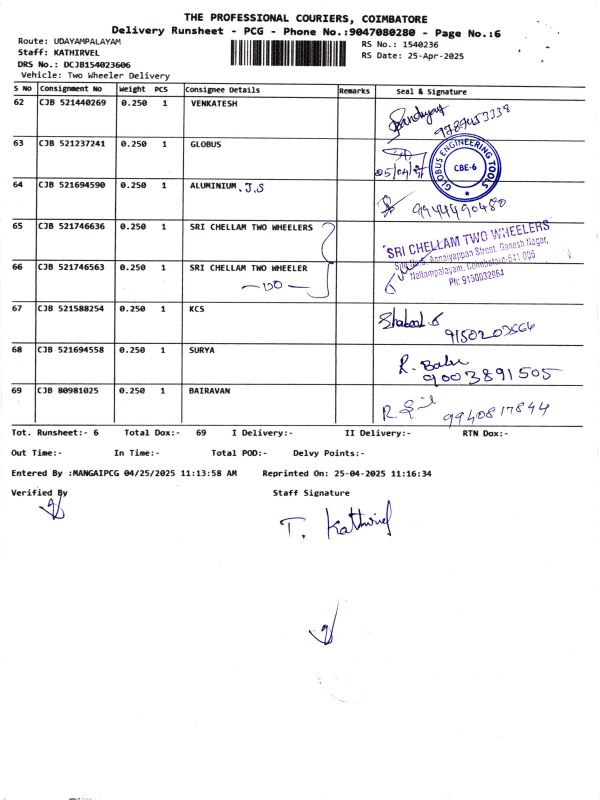 THE PROFESSIONAL COURIERS, COIMBATORE
Delivery Runsheet - PCG - Phone No.:9047080280 - Page No.:6
Route: UDAYAMPALAYAM
RS No.: 1540236
Staff: KATHIRVEL
RS Date: 25-Apr-2025
DRS No.: DCJB154023606
Vehicle: Two Wheeler Delivery
S No Consignment No Weight PCS Consignee Details Remarks Seal & Signature
62 CJB 521440269 0.250 1 VENKATESH
63 CJB 521237241 0.250 1 GLOBUS
GLOBUS ENGINEERING TOOLS
CBE-6
64 CJB 521694590 0.250 1 ALUMINIUM . J.S
9944490480
65 CJB 521746636 0.250 1 SRI CHELLAM TWO WHEELERS
SRI CHELLAM TWO WHEELERS
Annaiyappan Street, Ganesh Nagar,
Coimbatore-641 006
Ph: 9150032064
66 CJB 521746563 0.250 1 SRI CHELLAM TWO WHEELER
67 CJB 521588254 0.250 1 KCS
68 CJB 521694558 0.250 1 SURYA
R. Babu
9003891505
69 CJB 80981025 0.250 1 BAIRAVAN
9940817844
Tot. Runsheet:- 6 Total Dox:- 69 I Delivery:- II Delivery:- RTN Dox:-
Out Time:- In Time:- Total POD:- Delvy Points:-
Entered By :MANGAIPCG 04/25/2025 11:13:58 AM Reprinted On: 25-04-2025 11:16:34
Verified By Staff Signature
T. Kathirvel